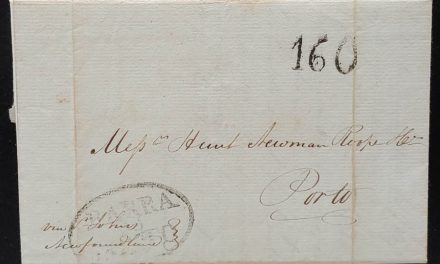 160
Mess.rs Hunt Newman Roope & Co
Porto
via St Johns
Newfoundland